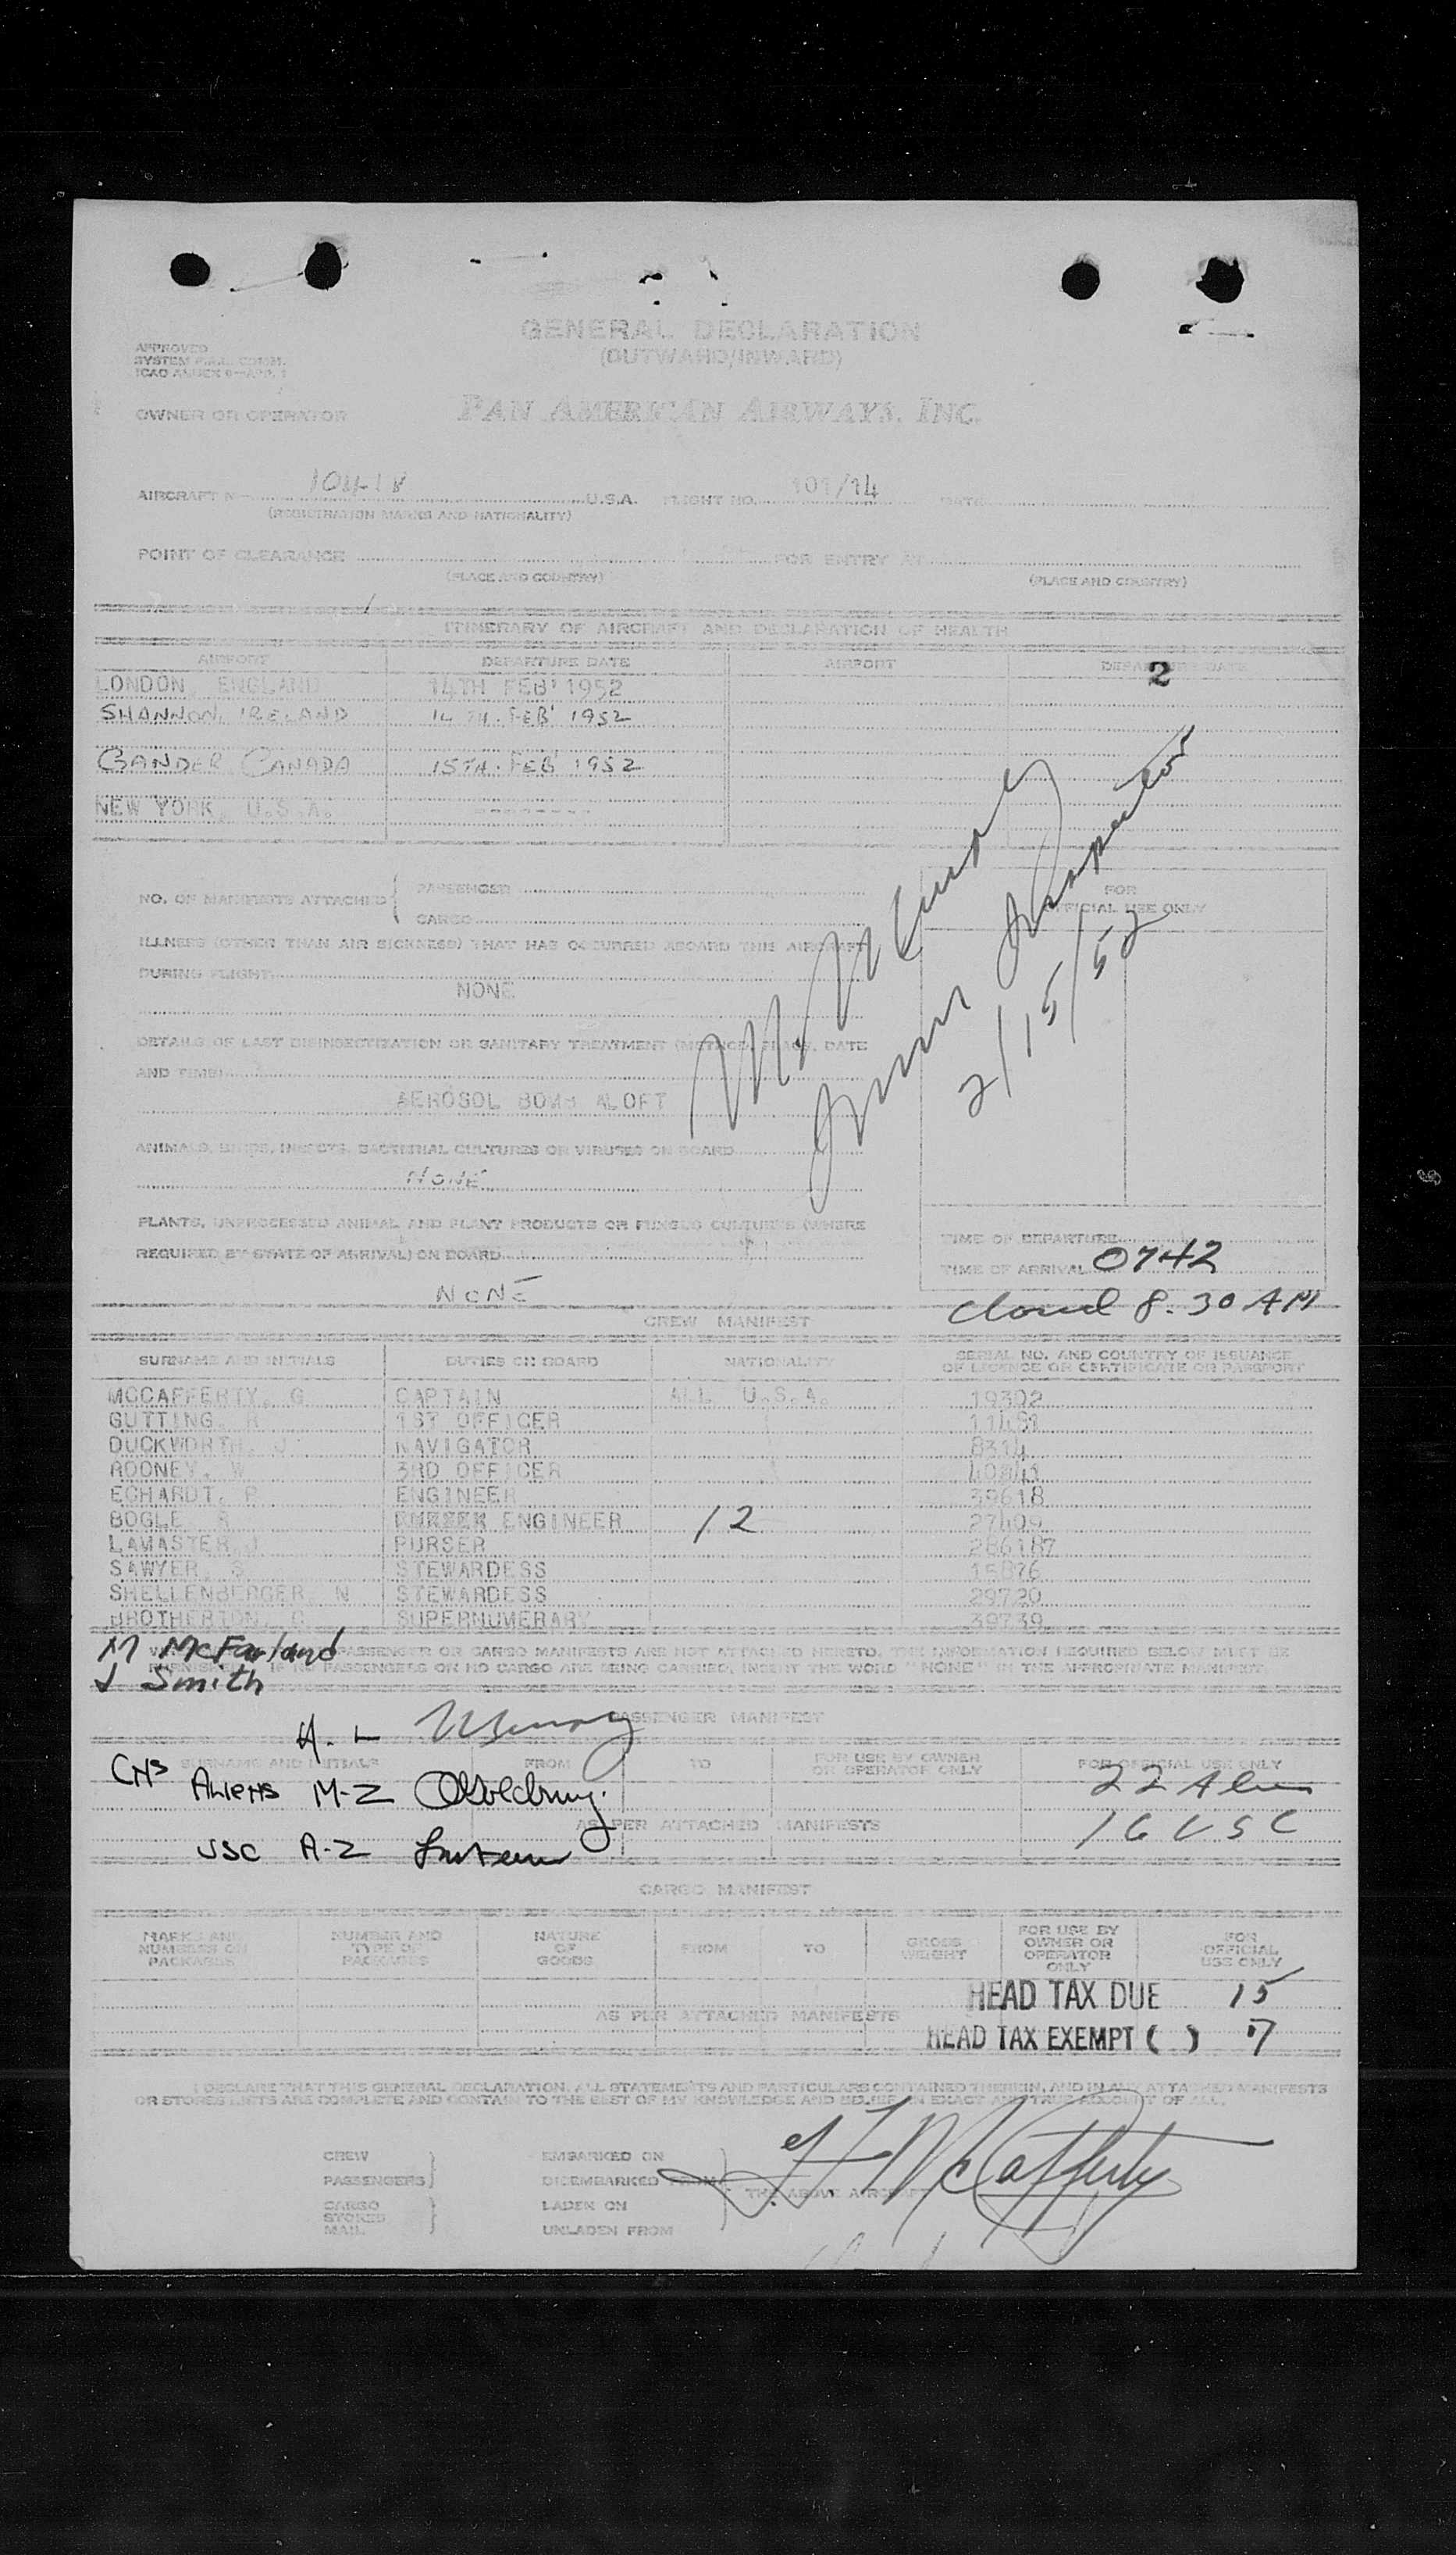 GENERAL DECLARATION
(OUTWARD/INWARD)
APPROVED
OWNER OR OPERATOR
PAN AMERICAN AIRWAYS, INC.
AIRCRAFT U.S.A. FLIGHT NO. 101/14 DATE
(REGISTRATION MARKS AND NATIONALITY)
POINT OF CLEARANCE FOR ENTRY AT
(PLACE AND COUNTRY) (PLACE AND COUNTRY)
ITINERARY OF AIRCRAFT AND DECLARATION OF HEALTH
AIRPORT DEPARTURE DATE AIRPORT DEPARTURE DATE
2
LONDON, ENGLAND 14TH FEB' 1952
SHANNON, IRELAND 14TH. FEB' 1952
GANDER CANADA 15TH. FEB' 1952
NEW YORK, U.S.A. --------
NO. OF MANIFESTS ATTACHED { PASSENGER
CARGO
FOR
OFFICIAL USE ONLY
ILLNESS (OTHER THAN AIR SICKNESS) THAT HAS OCCURRED ABOARD THIS AIRCRAFT
DURING FLIGHT
NONE
DETAILS OF LAST DISINSECTIZATION OR SANITARY TREATMENT (METHOD, PLACE, DATE
AND TIME)
AEROSOL BOMB ALOFT
2/15/52
ANIMALS, BIRDS, INSECTS, BACTERIAL CULTURES OR VIRUSES ON BOARD
NONE
PLANTS, UNPROCESSED ANIMAL AND PLANT PRODUCTS OR FUNGUS CULTURES (WHERE
REQUIRED BY STATE OF ARRIVAL) ON BOARD
NONE
TIME OF DEPARTURE
TIME OF ARRIVAL 0742
Closed 8.30 AM
CREW MANIFEST
SURNAME AND INITIALS DUTIES ON BOARD NATIONALITY SERIAL NO. AND COUNTRY OF ISSUANCE
OF LICENCE OR CERTIFICATE OR PASSPORT
MCCAFFERTY, G CAPTAIN ALL U.S.A. 19302
GUTTING, R 1ST OFFICER
DUCKWORTH, J NAVIGATOR 8314
ROONEY, W 3RD OFFICER
ECHARDT, R ENGINEER 39618
BOGLE, R ENGINEER 12 27409
LAMASTER, J PURSER 286187
SAWYER, S STEWARDESS 15876
SHELLENBERGER, N STEWARDESS 29720
BROTHERTON, C SUPERNUMERARY 39739
M McFarland
J Smith
PASSENGER OR CARGO MANIFESTS ARE NOT ATTACHED HERETO, THE INFORMATION REQUIRED BELOW MUST BE
IF NO PASSENGERS OR NO CARGO ARE BEING CARRIED, INSERT THE WORD "NONE" IN THE APPROPRIATE MANIFEST.
PASSENGER MANIFEST
A. L
SURNAME AND INITIALS FROM TO FOR USE BY OWNER
OR OPERATOR ONLY FOR OFFICIAL USE ONLY
Aliens M-Z 22 Alien
AS PER ATTACHED MANIFESTS 16 USC
USC A-Z
CARGO MANIFEST
MARKS AND
NUMBERS ON
PACKAGES
NUMBER AND
TYPE OF
PACKAGES
NATURE
OF
GOODS
FROM TO
GROSS
WEIGHT
FOR USE BY
OWNER OR
OPERATOR
ONLY
FOR
OFFICIAL
USE ONLY
HEAD TAX DUE 15
AS PER ATTACHED MANIFESTS
HEAD TAX EXEMPT ( ) 7
I DECLARE THAT THIS GENERAL DECLARATION, ALL STATEMENTS AND PARTICULARS CONTAINED THEREIN, AND IN ANY ATTACHED MANIFESTS
OR STORES LISTS ARE COMPLETE AND CONTAIN TO THE BEST OF MY KNOWLEDGE AND BELIEF AN EXACT AND TRUE ACCOUNT OF ALL.
CREW
PASSENGERS }
EMBARKED ON
DISEMBARKED FROM
THE ABOVE AIRCRAFT
CARGO
STORES
MAIL }
LADEN ON
UNLADEN FROM
McCafferty